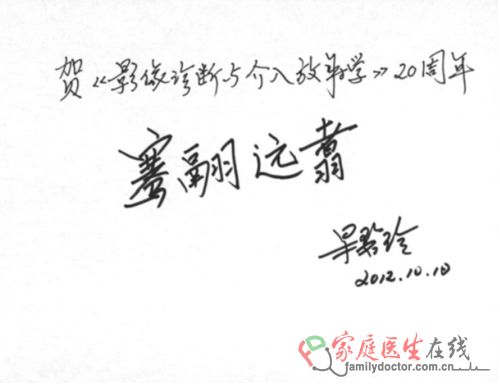 贺《影像诊断与介入放射学》20周年
骞翮远翥
2012.10.10
家庭医生在线
familydoctor.com.cn